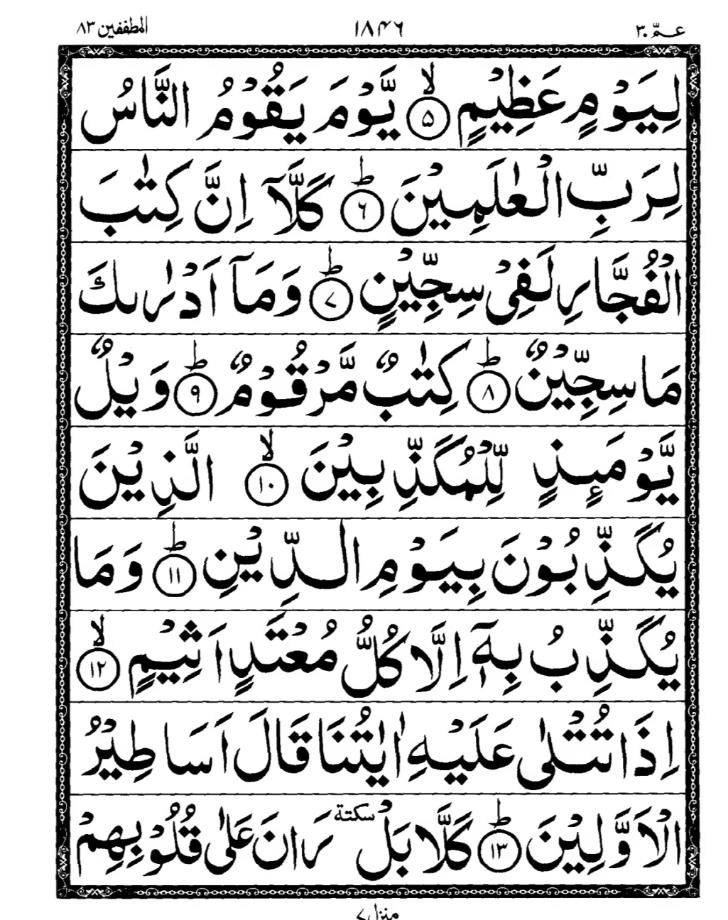 عـمّ ٣٠ ١٨٤٦ المطففين ٨٣
لِيَوْمٍ عَظِيْمٍ ۙ﴿۵﴾ يَّوْمَ يَقُوْمُ النَّاسُ
لِرَبِّ الْعٰلَمِيْنَ ؕ﴿۶﴾ كَلَّاۤ اِنَّ كِتٰبَ
الْفُجَّارِ لَفِیْ سِجِّيْنٍ ؕ﴿۷﴾ وَمَاۤ اَدْرٰىكَ
مَا سِجِّيْنٌ ؕ﴿۸﴾ كِتٰبٌ مَّرْقُوْمٌ ؕ﴿۹﴾ وَيْلٌ
يَّوْمَئِذٍ لِّلْمُكَذِّبِيْنَ ۙ﴿۱۰﴾ الَّذِيْنَ
يُكَذِّبُوْنَ بِيَوْمِ الدِّيْنِ ؕ﴿۱۱﴾ وَمَا
يُكَذِّبُ بِهٖۤ اِلَّا كُلُّ مُعْتَدٍ اَثِيْمٍ ۙ﴿۱۲﴾
اِذَا تُتْلٰى عَلَيْهِ اٰيٰتُنَا قَالَ اَسَاطِيْرُ
الْاَوَّلِيْنَ ؕ﴿۱۳﴾ كَلَّا بَلْ سكتة رَانَ عَلٰى قُلُوْبِهِمْ
منزل ٧